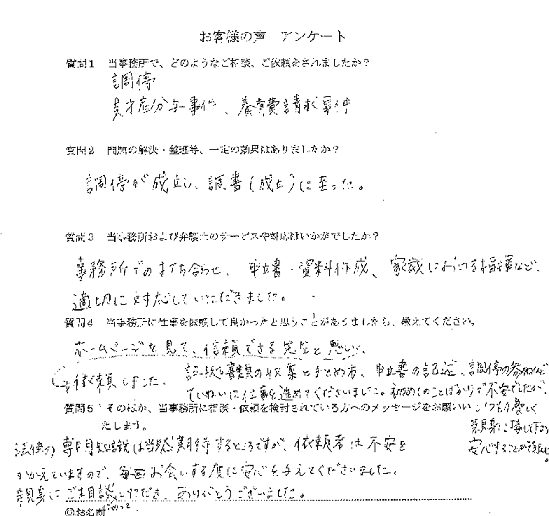 お客様の声 アンケート
質問1 当事務所で、どのようなご相談、ご依頼をされましたか?
調停
財産分与事件、養育費請求事件
質問2 問題の解決・整理等、一定の効果はありましたか?
調停が成立し、調書(成立)に至った。
質問3 当事務所および弁護士のサービスや対応はいかがでしたか?
事務所での打ち合わせ、申立書・資料作成、家裁における指導など、
適切に対応していただきました。
質問4 当事務所に仕事を依頼して良かったと思うことがありましたら、教えてください。
ホームページを見て、信頼できる先生と思い、
依頼しました。 書類の収集とまとめ方、申立書の記述、調停の
ていねいに仕事を進めてくださいました。初めてのことばかりで不安でしたが、
質問5 そのほか、当事務所に相談・依頼を検討されている方へのメッセージをお願い いつも優しく
いたします。 親身に接して下さり
法律の専門知識は当然期待するところですが、依頼者は不安を 安心することができました。
かかえていますので、毎回お会いする度に安心を与えてくださいました。
親身にご相談いただき、ありがとうございました。
◎お名前